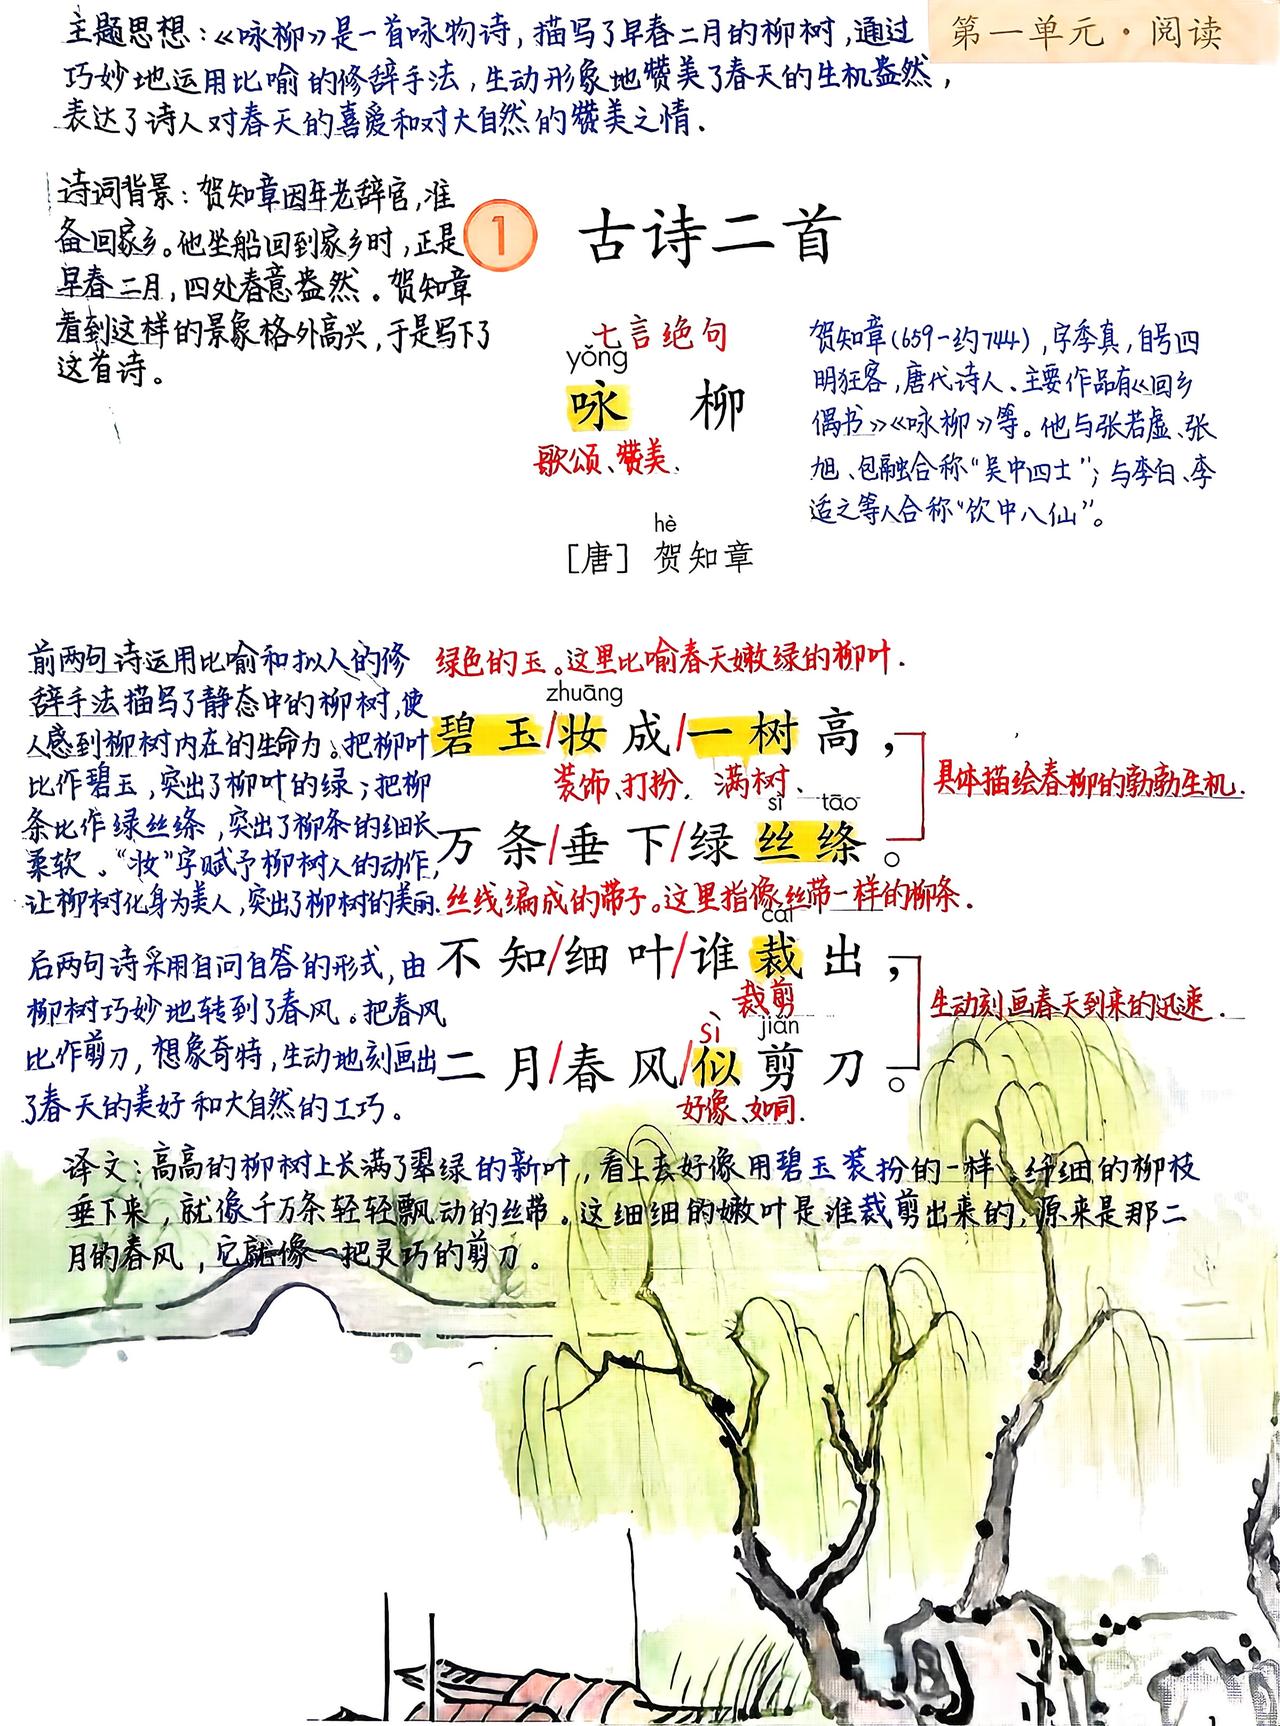 第一单元·阅读
主题思想：《咏柳》是一首咏物诗，描写了早春二月的柳树，通过
巧妙地运用比喻的修辞手法，生动形象地赞美了春天的生机盎然，
表达了诗人对春天的喜爱和对大自然的赞美之情.
诗词背景：贺知章因年老辞官，准
备回家乡。他坐船回到家乡时，正是
早春二月，四处春意盎然。贺知章
看到这样的景象格外高兴，于是写下了
这首诗。
1 古诗二首
七言绝句
yǒng
咏 柳
歌颂、赞美.
hè
［唐］ 贺知章
贺知章(659-约744)，字季真，自号四
明狂客，唐代诗人、主要作品有《回乡
偶书》《咏柳》等。他与张若虚、张
旭、包融合称“吴中四士”；与李白、李
适之等人合称“饮中八仙”。
前两句诗运用比喻和拟人的修
辞手法描写了静态中的柳树，使
人感到柳树内在的生命力。把柳叶
比作碧玉，突出了柳叶的绿；把柳
条比作绿丝绦，突出了柳条的细长
柔软。“妆”字赋予柳树人的动作，
让柳树化身为美人，突出了柳树的美丽.
绿色的玉。这里比喻春天嫩绿的柳叶.
zhuāng
碧玉/妆成/一树高，
装饰、打扮. 满树、
具体描绘春柳的勃勃生机.
sī tāo
万条/垂下/绿丝绦。
丝线编成的带子。这里指像丝带一样的柳条.
后两句诗采用自问自答的形式，由
柳树巧妙地转到了春风。把春风
比作剪刀，想象奇特，生动地刻画出
了春天的美好和大自然的工巧。
cái
不知/细叶/谁裁出，
裁剪
生动刻画春天到来的迅速.
sì jiǎn
二月/春风/似剪刀。
好像、如同.
译文：高高的柳树上长满了翠绿的新叶，看上去好像用碧玉装扮的一样。纤细的柳枝
垂下来，就像千万条轻轻飘动的丝带。这细细的嫩叶是谁裁剪出来的，原来是那二
月的春风，它就像一把灵巧的剪刀。